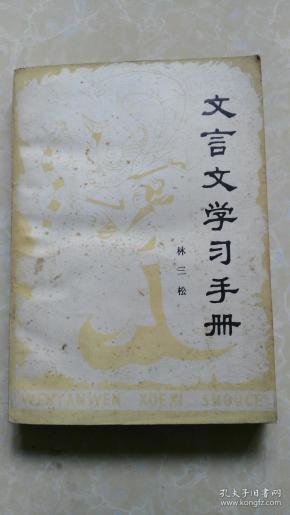 文言文学习手册
林三松
WENYANWEN XUEXI SHOUCE
孔夫子旧书网